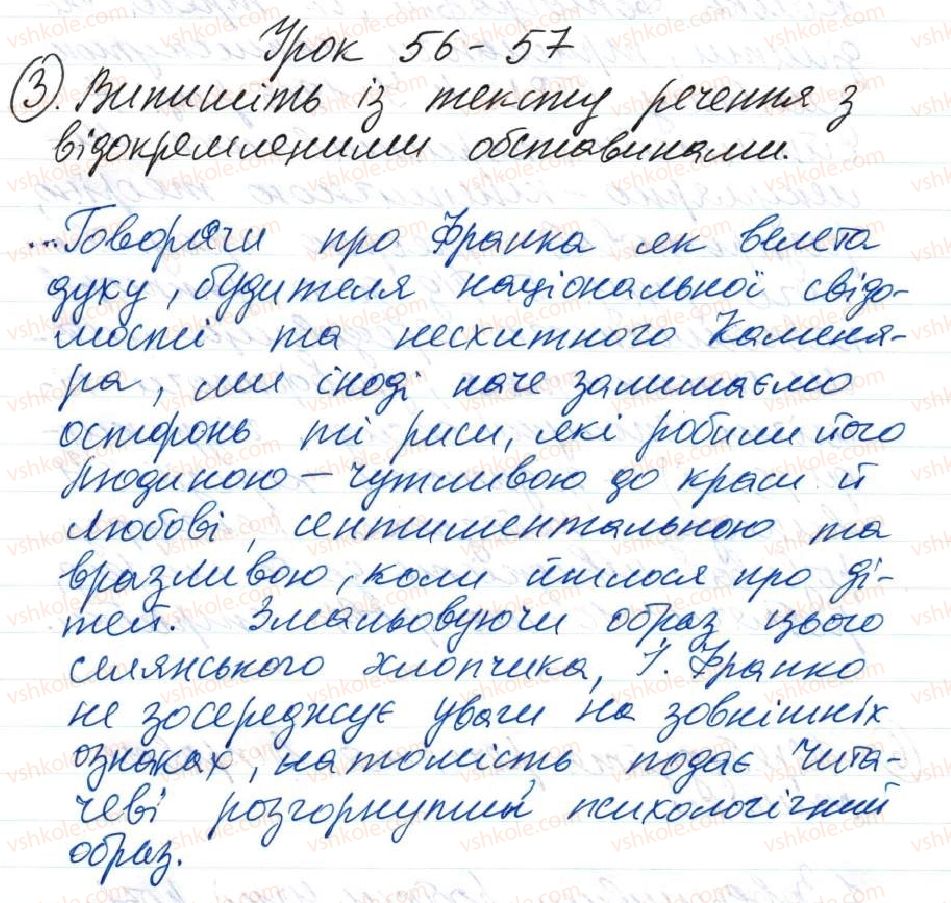 Урок 56-57
3. Випишіть із тексту речення з
відокремленими обставинами.
...Говорячи про Франка як велета
духу, будителя національної свідо-
мості та несхитного Каменя-
ра, ми іноді наче залишаємо
осторонь ті риси, які робили його
людиною – чутливою до краси й
любові, сентиментальною та
вразливою, коли йшлося про ді-
тей. Змальовуючи образ цього
селянського хлопчика, І. Франко
не зосереджує уваги на зовнішніх
ознаках, натомість подає чита-
чеві розгорнутий психологічний
образ.